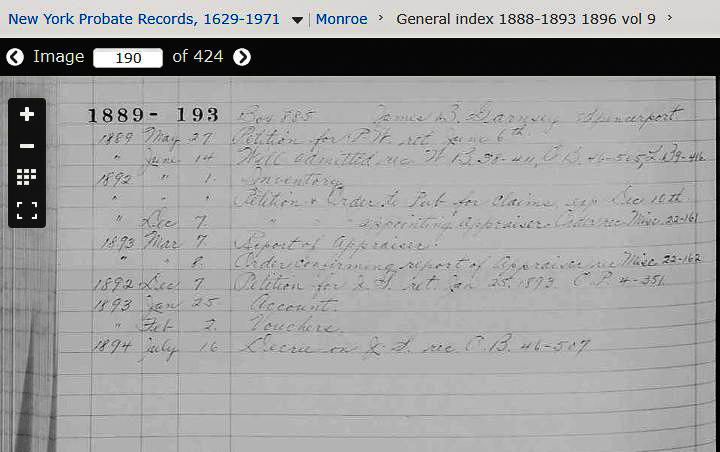 New York Probate Records, 1629-1971 Monroe › General index 1888-1893 1896 vol 9 ›
Image 190 of 424
1889- 193 Box 885 James B. Garnsey Spencerport
1889 May 27 Petition for P.W. ret June 6th
" June 14 Will admitted, rec W B. 38-411, O B. 46-505, L B9-416
1892 " 1. Inventory
" " " Petition & Order to Pub for claims, exp Dec 10th
" Dec 7. " " " appointing appraiser Order rec Misc. 22-161
1893 Mar 7. Report of appraiser.
" " 8. Order confirming report of Appraiser rec Misc 22-162
1892 Dec 7 Petition for J. S. ret Jan 25, 1893 C. P. 4-351
1893 Jan 25 Account.
" Feb 2. Vouchers.
1894 July 16 Decree on J. S. rec O.B. 46-507